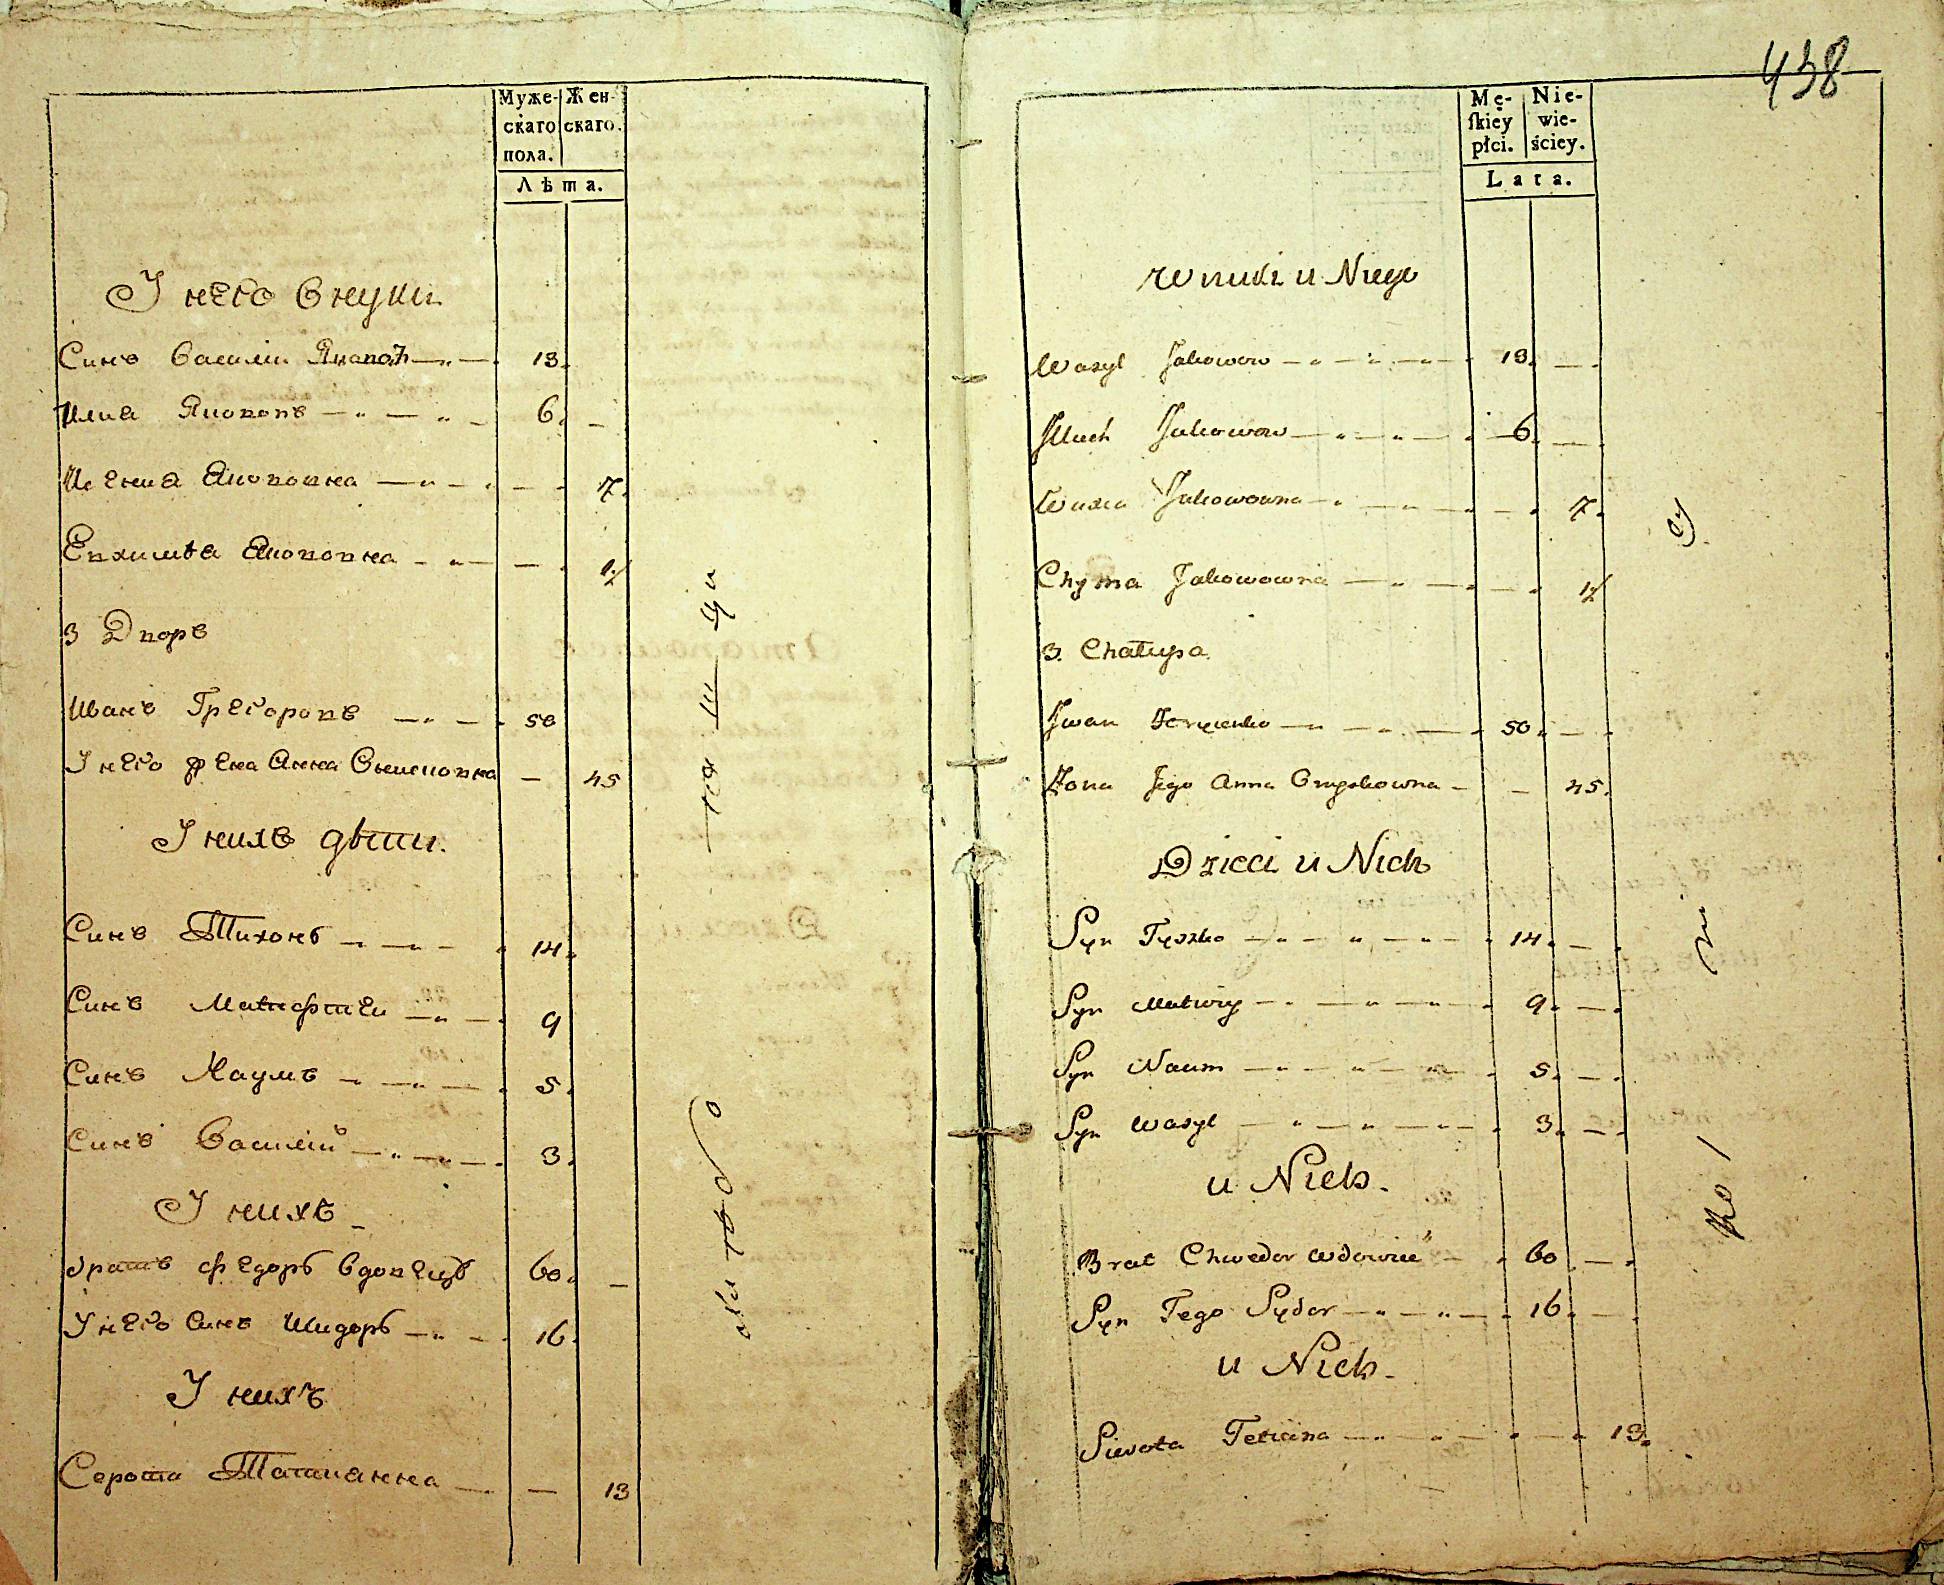 Муже-
скаго
пола.
Жен-
скаго.
Лѣта.
У него внуки
Синъ Василіи Якововъ 13.
Илиа Якововъ 6.
Якововна 7.
Евхимѣа Якововна 1/2
3 Дворъ
Иванъ Грегоровъ 50
У него жена Анна 45
У нихъ дѣти.
Синъ Тихонъ 14.
Синъ 9
Синъ Наумъ 5.
Синъ Василій 3.
У нихъ
братъ Федоръ вдовецъ 60.
У него синъ Шидоръ 16.
У нихъ
Серота Татианна 13
438
Mę-
ſkiey
płci.
Nie-
wie-
ściey.
Lata.
Wnuki u Niego
Wasyl Jakowow 13.
Jakowow 6.
Jakowowna 7.
Chyma Jakowowna 1/2
3. Chałupa.
Iwan 50.
Żona Jego Anna 45.
Dzieci u Nich
Syn Tyszko 14.
Syn Matwiy 9.
Syn Naum 5.
Syn Wasyl 3.
u Nich.
Brat Chwedor wdowiec 60.
Syn Tego Sydor 16.
u Nich.
Sierota Teticina 13.